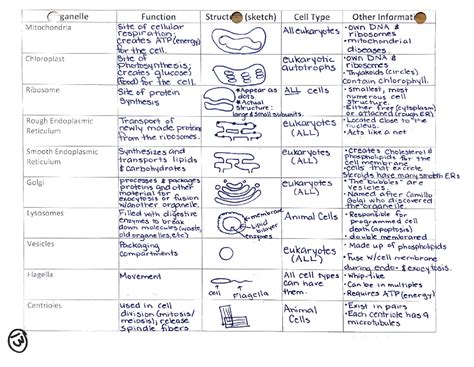 rganelle Function Struct (sketch) Cell Type Other Informat
Mitochondria
Site of cellular
respiration;
creates ATP (energy)
for the cell.
All eukaryotes
•own DNA &
ribosomes
•mitochondrial
diseases.
Chloroplast
Site of
photosynthesis;
creates glucose
(food) for the cell.
eukaryotic
autotrophs
•own DNA &
ribosomes
•Thylakoids (circles)
contain chlorophyll.
Ribosome
Site of protein
Synthesis
*Appear as
dots
*Actual
Structure:
large & small subunits.
ALL cells
•smallest, most
numerous cell
structure.
•Either free (cytoplasm)
or attached (rough ER)
Rough Endoplasmic
Reticulum
Transport of
newly made proteins
from the ribosomes.
eukaryotes
(ALL)
•Located close to the
nucleus.
•Acts like a net
Smooth Endoplasmic
Reticulum
Synthesizes and
transports lipids
& carbohydrates
eukaryotes
(ALL)
•creates cholesterol &
phospholipids for the
cell membrane
•cells that excrete
steroids have many smooth ERs
Golgi
processes & packages
proteins and other
material for
exocytosis or fusion
w/another organelle.
eukaryotes
(ALL)
•The "bubbles" are
vesicles.
•Named after Camillo
Golgi who discovered
the organelle.
Lysosomes
Filled with digestive
enzymes to break
down molecules (waste,
old organelles, etc)
membrane
lipid
bilayer
enzymes
Animal Cells
•Responsible for
programmed cell
death (apoptosis)
•double membraned
Vesicles
Packaging
compartments
eukaryotes
(ALL)
•Made up of phospholipids
•Fuse w/cell membrane
during endo- & exocytosis.
Flagella
Movement
cell Flagella
All cell types
can have
them.
•Whip-like
•Can be in multiples
•Requires ATP (energy)
Centrioles
used in cell
division (mitosis/
meiosis); release
spindle fibers
Animal
Cells
•Exist in pairs
•Each centriole has 9
microtubules
13